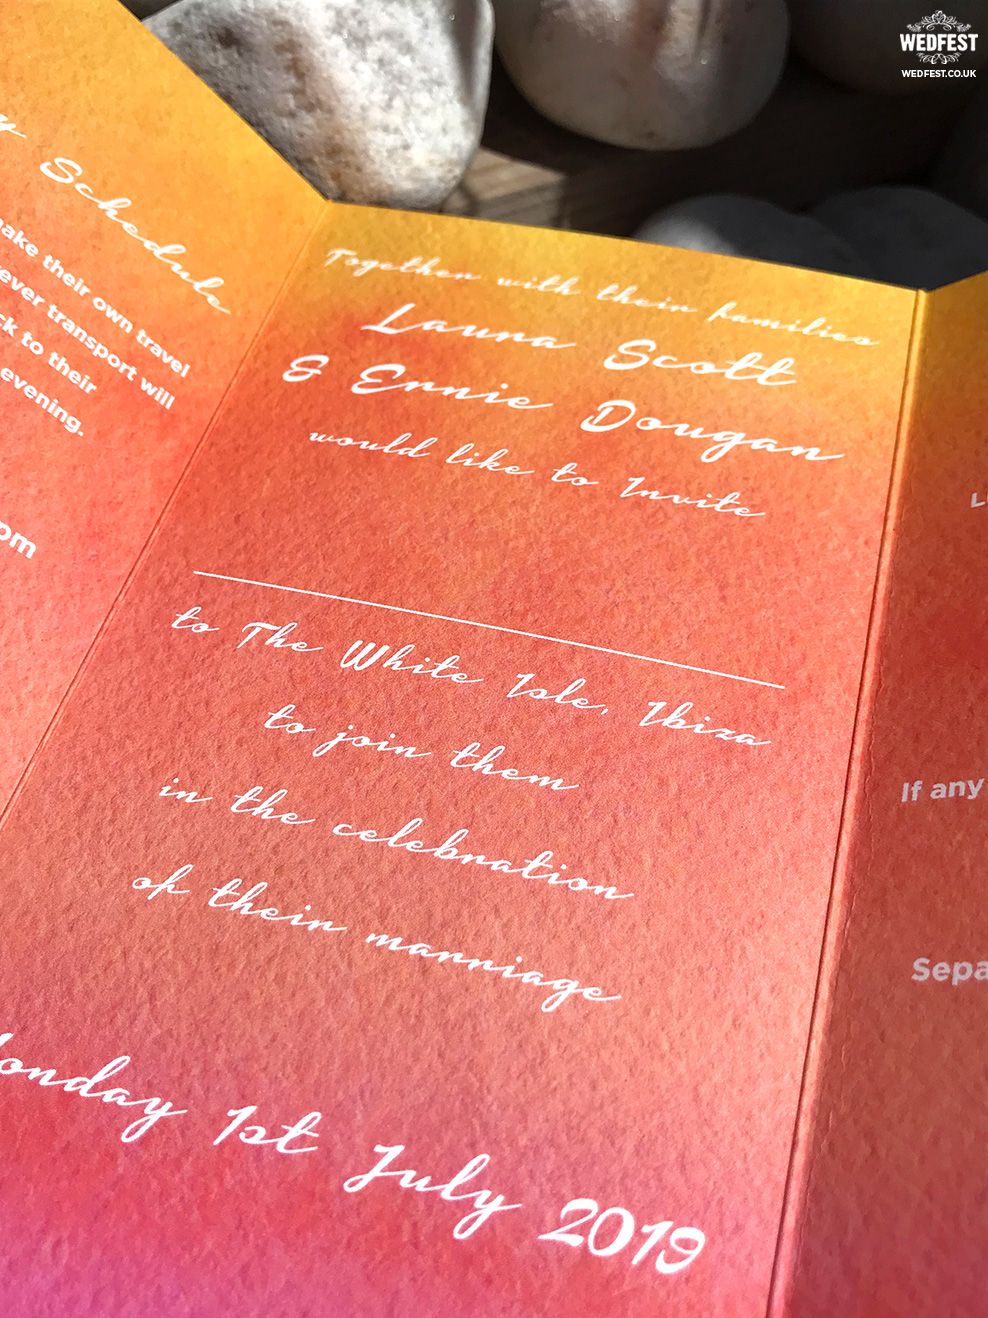 WEDFEST
WEDFEST.CO.UK
Schedule
their own travel
ever transport will
to their
evening.
pm
Together with their families
Laura Scott
& Ernie Dougan
would like to Invite
to The White Isle, Ibiza
to join them
in the celebration
of their marriage
Monday 1st July 2019
If any